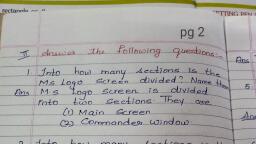 rectangle
SETTING PEN
pg 2
II Answer the following questions:-
1. Into how many sections is the
Ms Logo screen divided? Name them
Ans Ms Logo screen is divided
into two sections They are
(1) Main Screen
(2) Commander window
2 Into how many
Ans
5
Ans